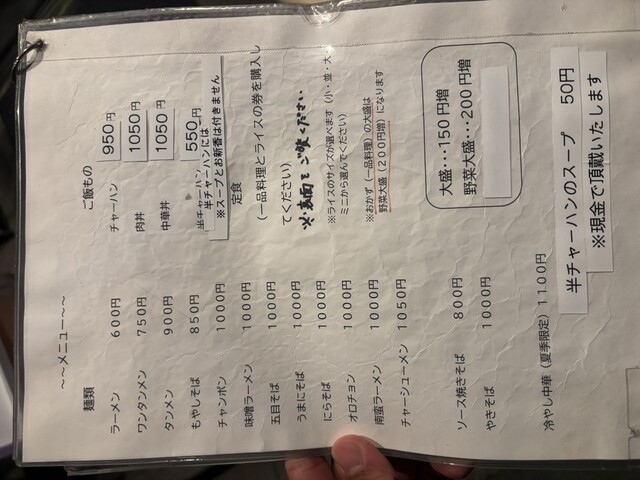 ～～メニュー～～
麺類
ラーメン 600円
ワンタンメン 750円
タンメン 900円
もやしそば 850円
チャンポン 1000円
味噌ラーメン 1000円
五目そば 1000円
うまにそば 1000円
にらそば 1000円
オロチョン 1000円
南蛮ラーメン 1000円
チャーシューメン 1050円
ソース焼きそば 800円
やきそば 1000円
冷やし中華（夏季限定）1100円
ご飯もの
チャーハン 950円
肉丼 1050円
中華丼 1050円
半チャーハン 550円
半チャーハンには
※スープとお新香は付きません
定食
（一品料理とライスの券を購入し
てください）
※裏面をご覧ください
※ライスのサイズが選べます（小・並・大
ミニから選んでください）
※おかず（一品料理）の大盛は
野菜大盛（200円増）になります
大盛・・・150円増
野菜大盛・・・200円増
半チャーハンのスープ 50円
※現金で頂戴いたします